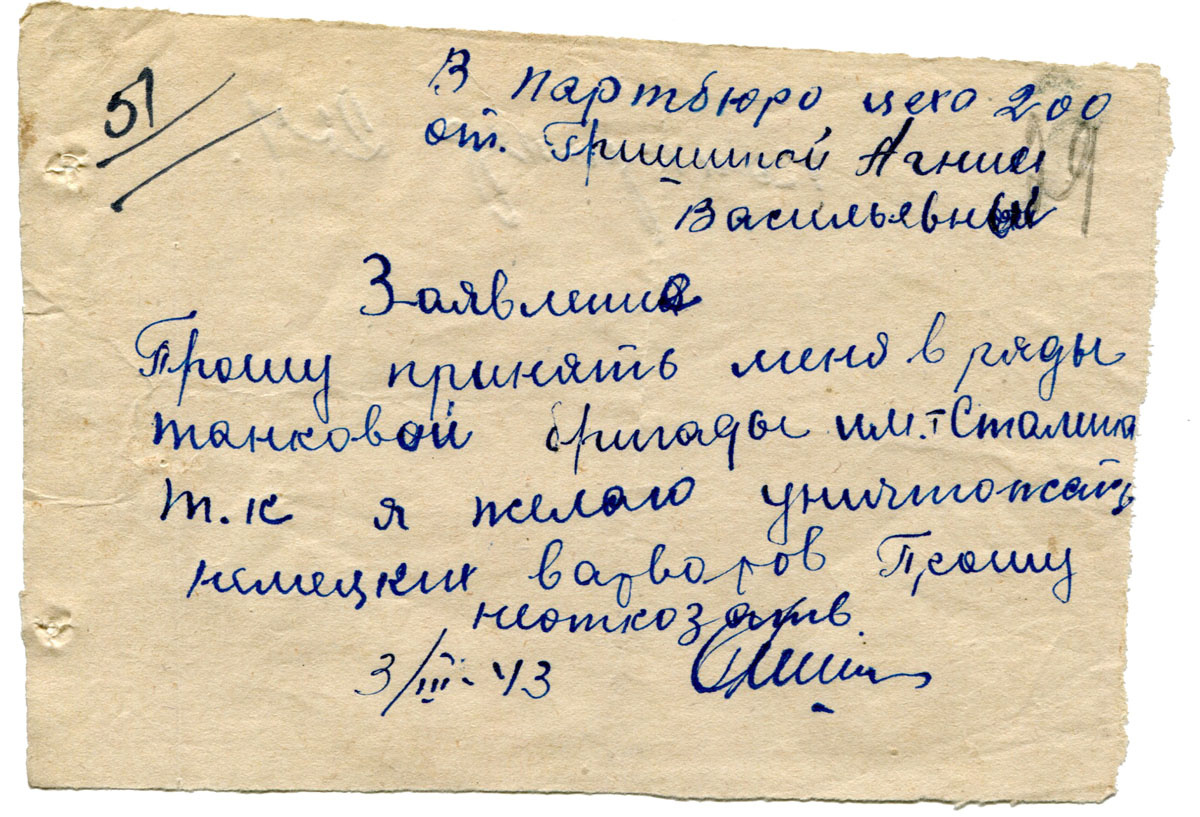 51
В партбюро цеха 200
от. Гришиной Агнии
Васильевны
19
Заявление
Прошу принять меня в ряды
танковой бригады им. т Сталина
т.к я желаю уничтожать
немецких варваров Прошу
неотказать.
3/III-43